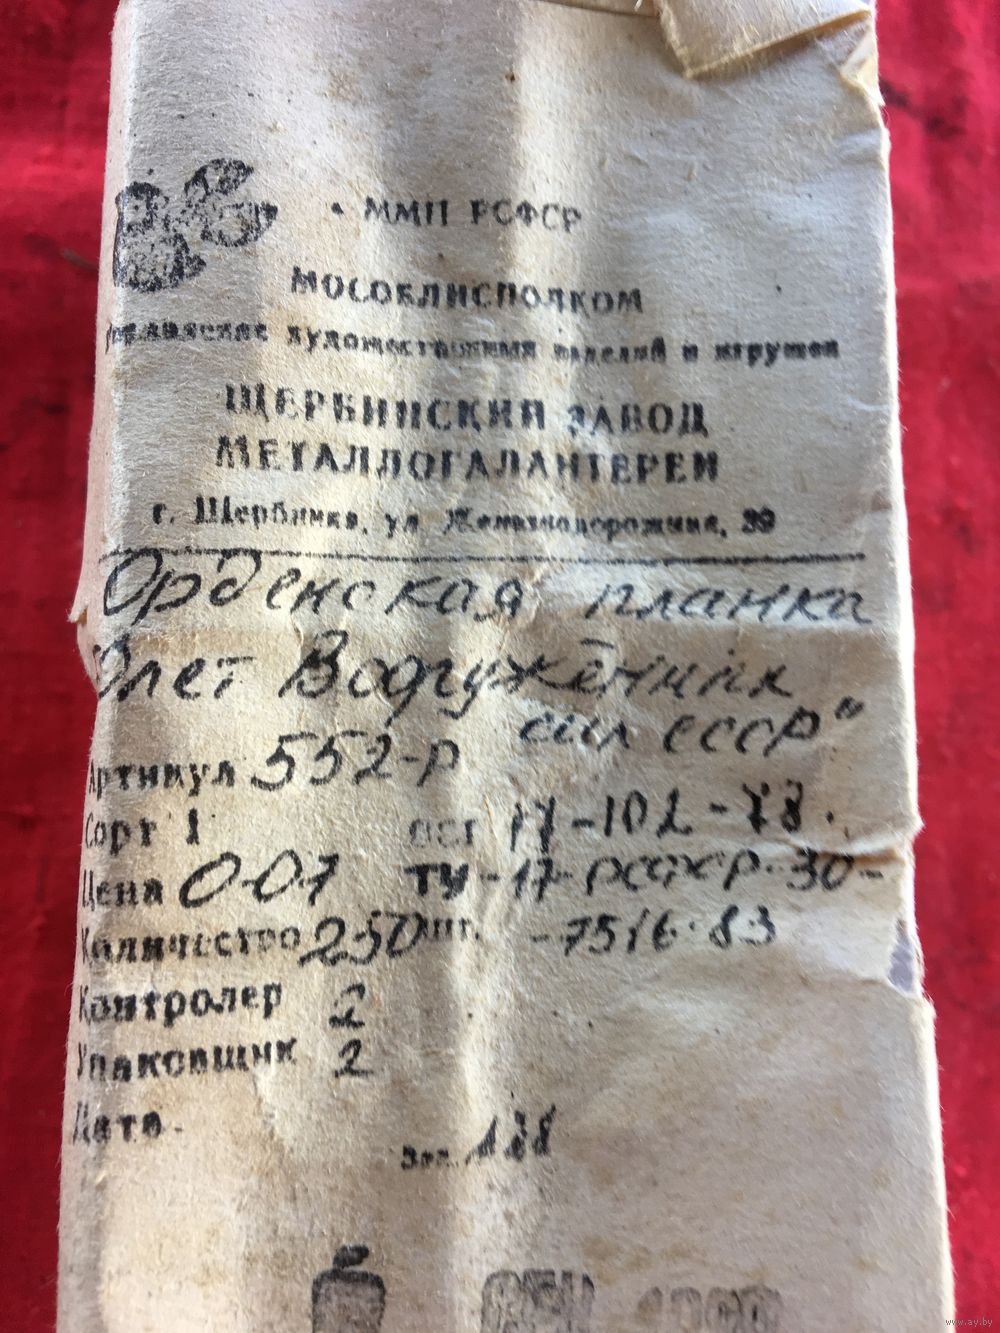 ММП РСФСР
МОСОБЛИСПОЛКОМ
управление художественных изделий и игрушек
ЩЕРБИНСКИЙ ЗАВОД
МЕТАЛЛОГАЛАНТЕРЕИ
г. Щербинка, ул. Железнодорожная, 39
Орденская планка
лет Вооружённых
сил СССР"
Артикул 552-Р
Сорт 1 ост 17-102-78.
Цена 0-07 ТУ-17-РСФСР-30-
Количество 250 шт. -7516-83
Контролер 2
Упаковщик 2
Дата
Зак. 188
www.ay.by